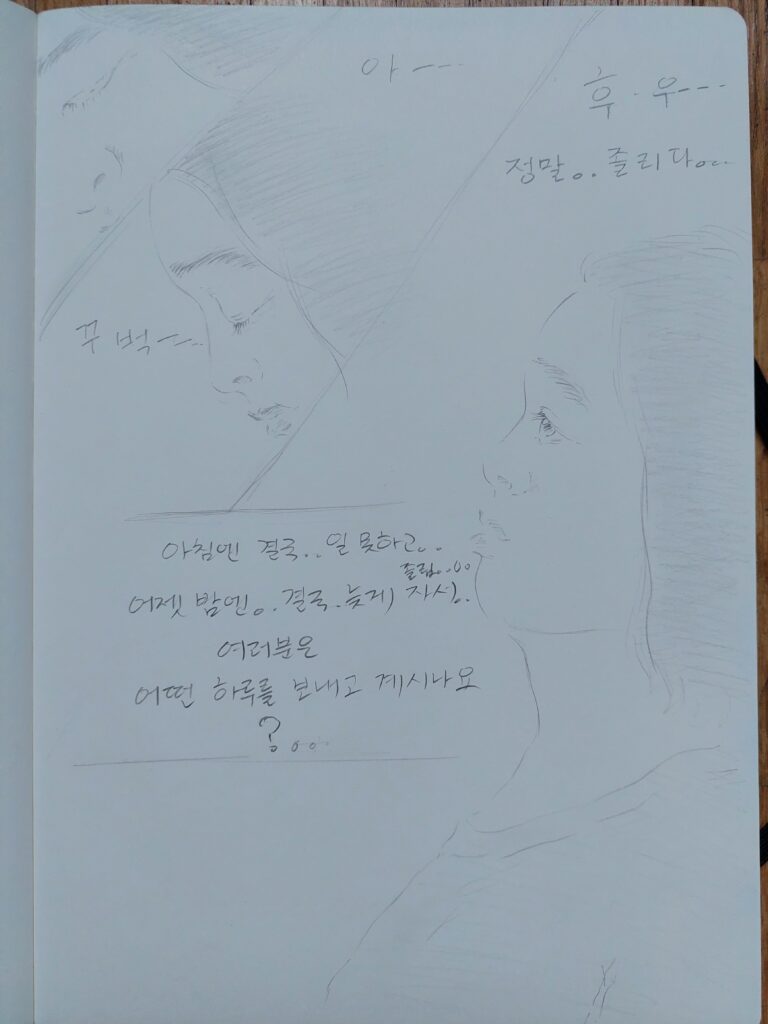 아---
후·우---
정말.. 졸리다...
꾸벅---
아침엔 결국.. 일 못하고..
졸림....
어젯밤엔.. 결국. 늦게
여러분은
어떤 하루를 보내고 계시나요
?...